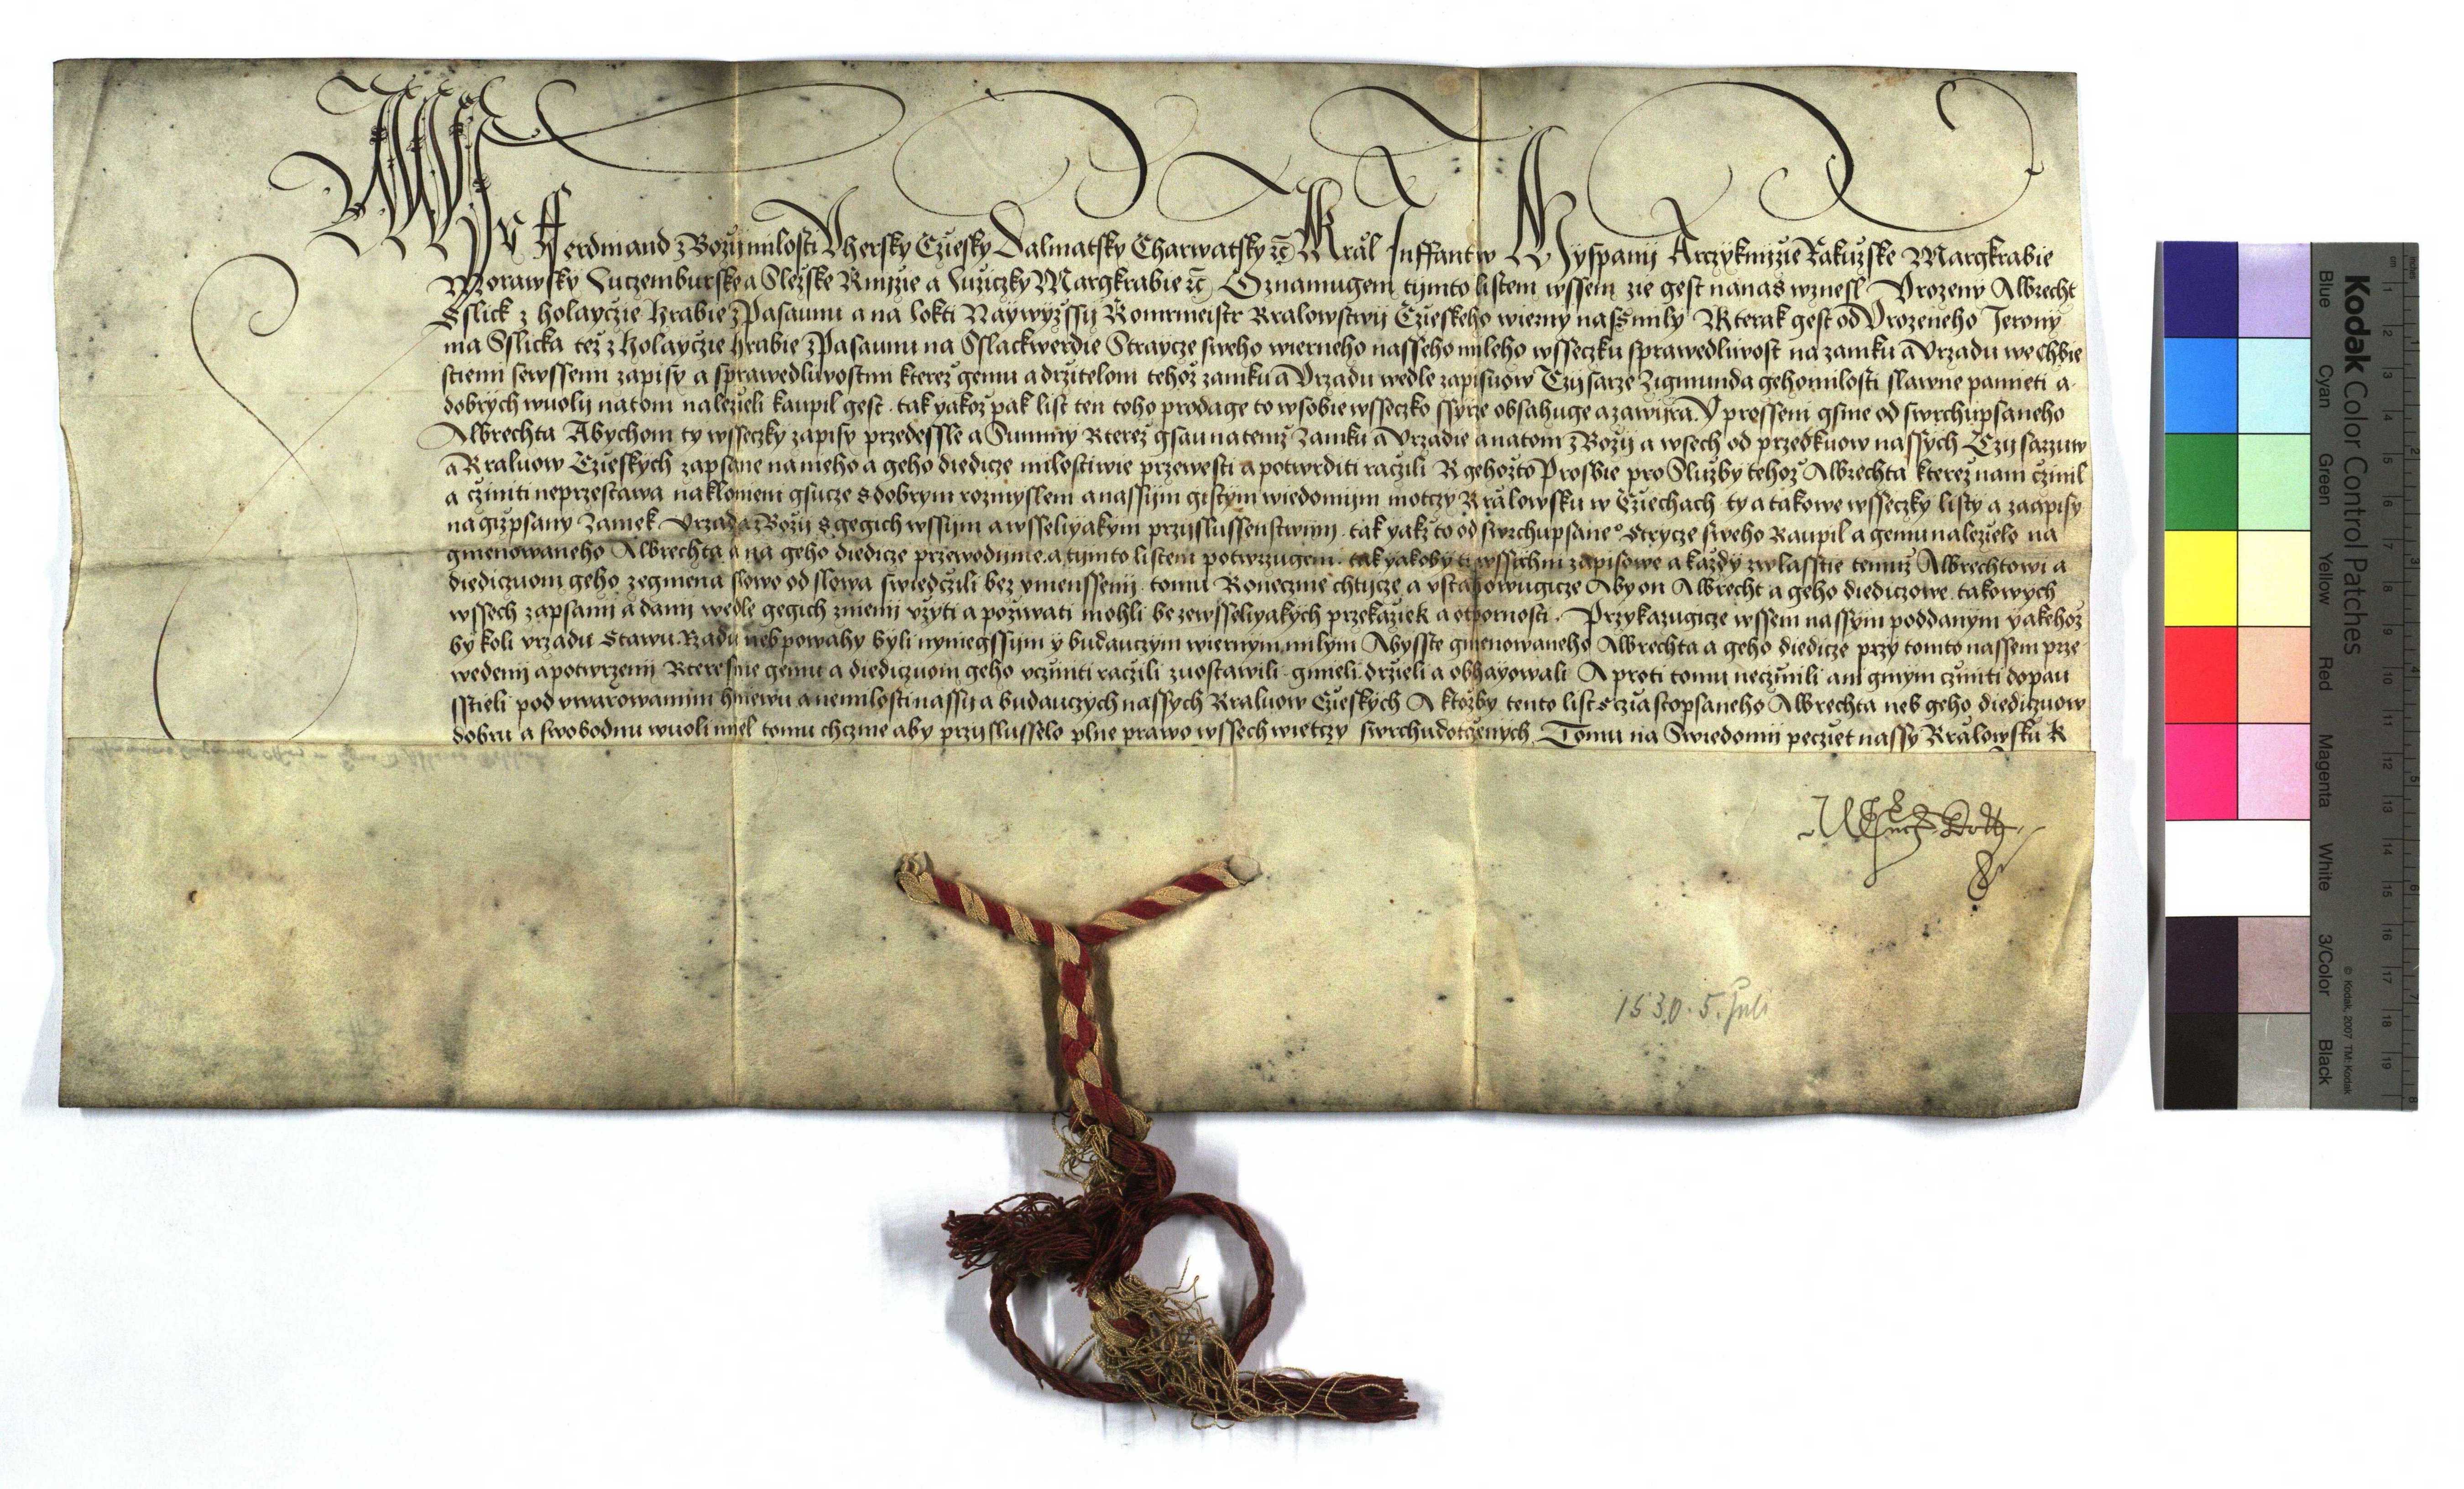 My Fferdinand z Bozij milosti Vhersky Czesky Dalmatsky Charwatsky zc Kral Inffant w Hyspanij Arczyknijze Rakuzske Margkrabie
Morawsky Luczemburske a Slezske Knijze a Luziczky Margkrabie zc Oznamugem tijmto listem wssem zie gest na nas wznesl Vrozeny Albrecht
Sslick z holayczie hrabie z Pasaunu a na lokti Naywyzssij Komrmeistr Kralowstwij Czeskeho wierny nass mily Kterak gest od Vrozeneho Jerony
ma Sslicka tez z holayczie hrabie z Pasaunu na Sslackwerdie Strayce sweho wierneho nasseho mileho wsseczku sprawedliwost na zamku a Vrzadu we Chbie
stiemi sewssemi zapisy a sprawedliwostmi kterez gemu a drzitelom tehoz zamku a Vrzadu wedle zapisuow Czijsarze Zigmunda gehomilosti slawne pamieti a
dobrych wuolij natom nalezieli kaupil gest tak yakoz pak list ten toho prodage to wsobie wsseczko ssyrze obsahuge a zawira. Y prosseni gsme od swrchupsaneho
Albrechta Abychom ty wsseczky zapisy przedessle a Summy Kterez gsau na temz Zamku a Vrzadie a natom z Bozij a wsech od przedkuow nassych Czijsarzuw
a Kraluow Czeskych zapsane na nieho a geho diedicze milostiwie przewesti a potwrditi raczili K gehozto Prosbie pro Sluzby tehoz Albrechta kterez nam czinil
a cziniti neprzestawa naklonieni gsucze s dobrym rozmyslem a nassijm gistym wiedomijm motczy Kralowsku w Czechach ty a takowe wsseczky listy a zaapisy
na giz psany Zamek Vrzad a z Bozij s gegich wssijm a wsseliyakym przyslussenstwijm tak yakz to od swrchupsane° Strycze sweho Kaupil a gemu nalezielo na
gmenowaneho Albrechta a na geho diedicze przewodime a tijmto listem potwrzugem tak yakoby ti wssichni zapisowe a kazdy zwlasstie temuz Albrechtowi a
diediczuom geho zegmena slowo od slowa swiedczili bez vmenssenij tomu Koneczne chtijcze a vstanowugicze Aby on Albrecht a geho dieczowe takowych
wssech zapsanij a danij wedle gegich znienij vzyti a pozwati mohli bezewsseliyakych przekaziek a otpornosti. Przykazugicze wssem nassym poddanym yakehoz
by koli vrzadu Stawu Rzadu neb powahy byli nyniegssijm y budauczym wiernym milym Abysste gmenowaneho Albrechta a geho diedicze przy tomto nassem prze
wedenij a potwrzenij Kterez sme gemu a diediczuom geho vcziniti raczili zuostawili gmieli drzieli a obhayowali A proti tomu neczinili ani ginym cziniti dopau
sstieli pod vwarowanim hniewu a nemilosti nassij a budauczych nassych Kraluow Czeskych A ktozby tento list s czia stopsaneho Albrechta neb geho diediczuow
dobru a swobodnu wuoli miel tomu chczme aby przyslusselo plne prawo wssech wietczy swrchudotczenych. Tomu na Swiedomij peczet nassy Kralowsku K
1530. 5. Juli
Kodak Color Control Patches
Blue Cyan Green Yellow Red Magenta White 3/Color Black
© Kodak, 2007 TM: Kodak